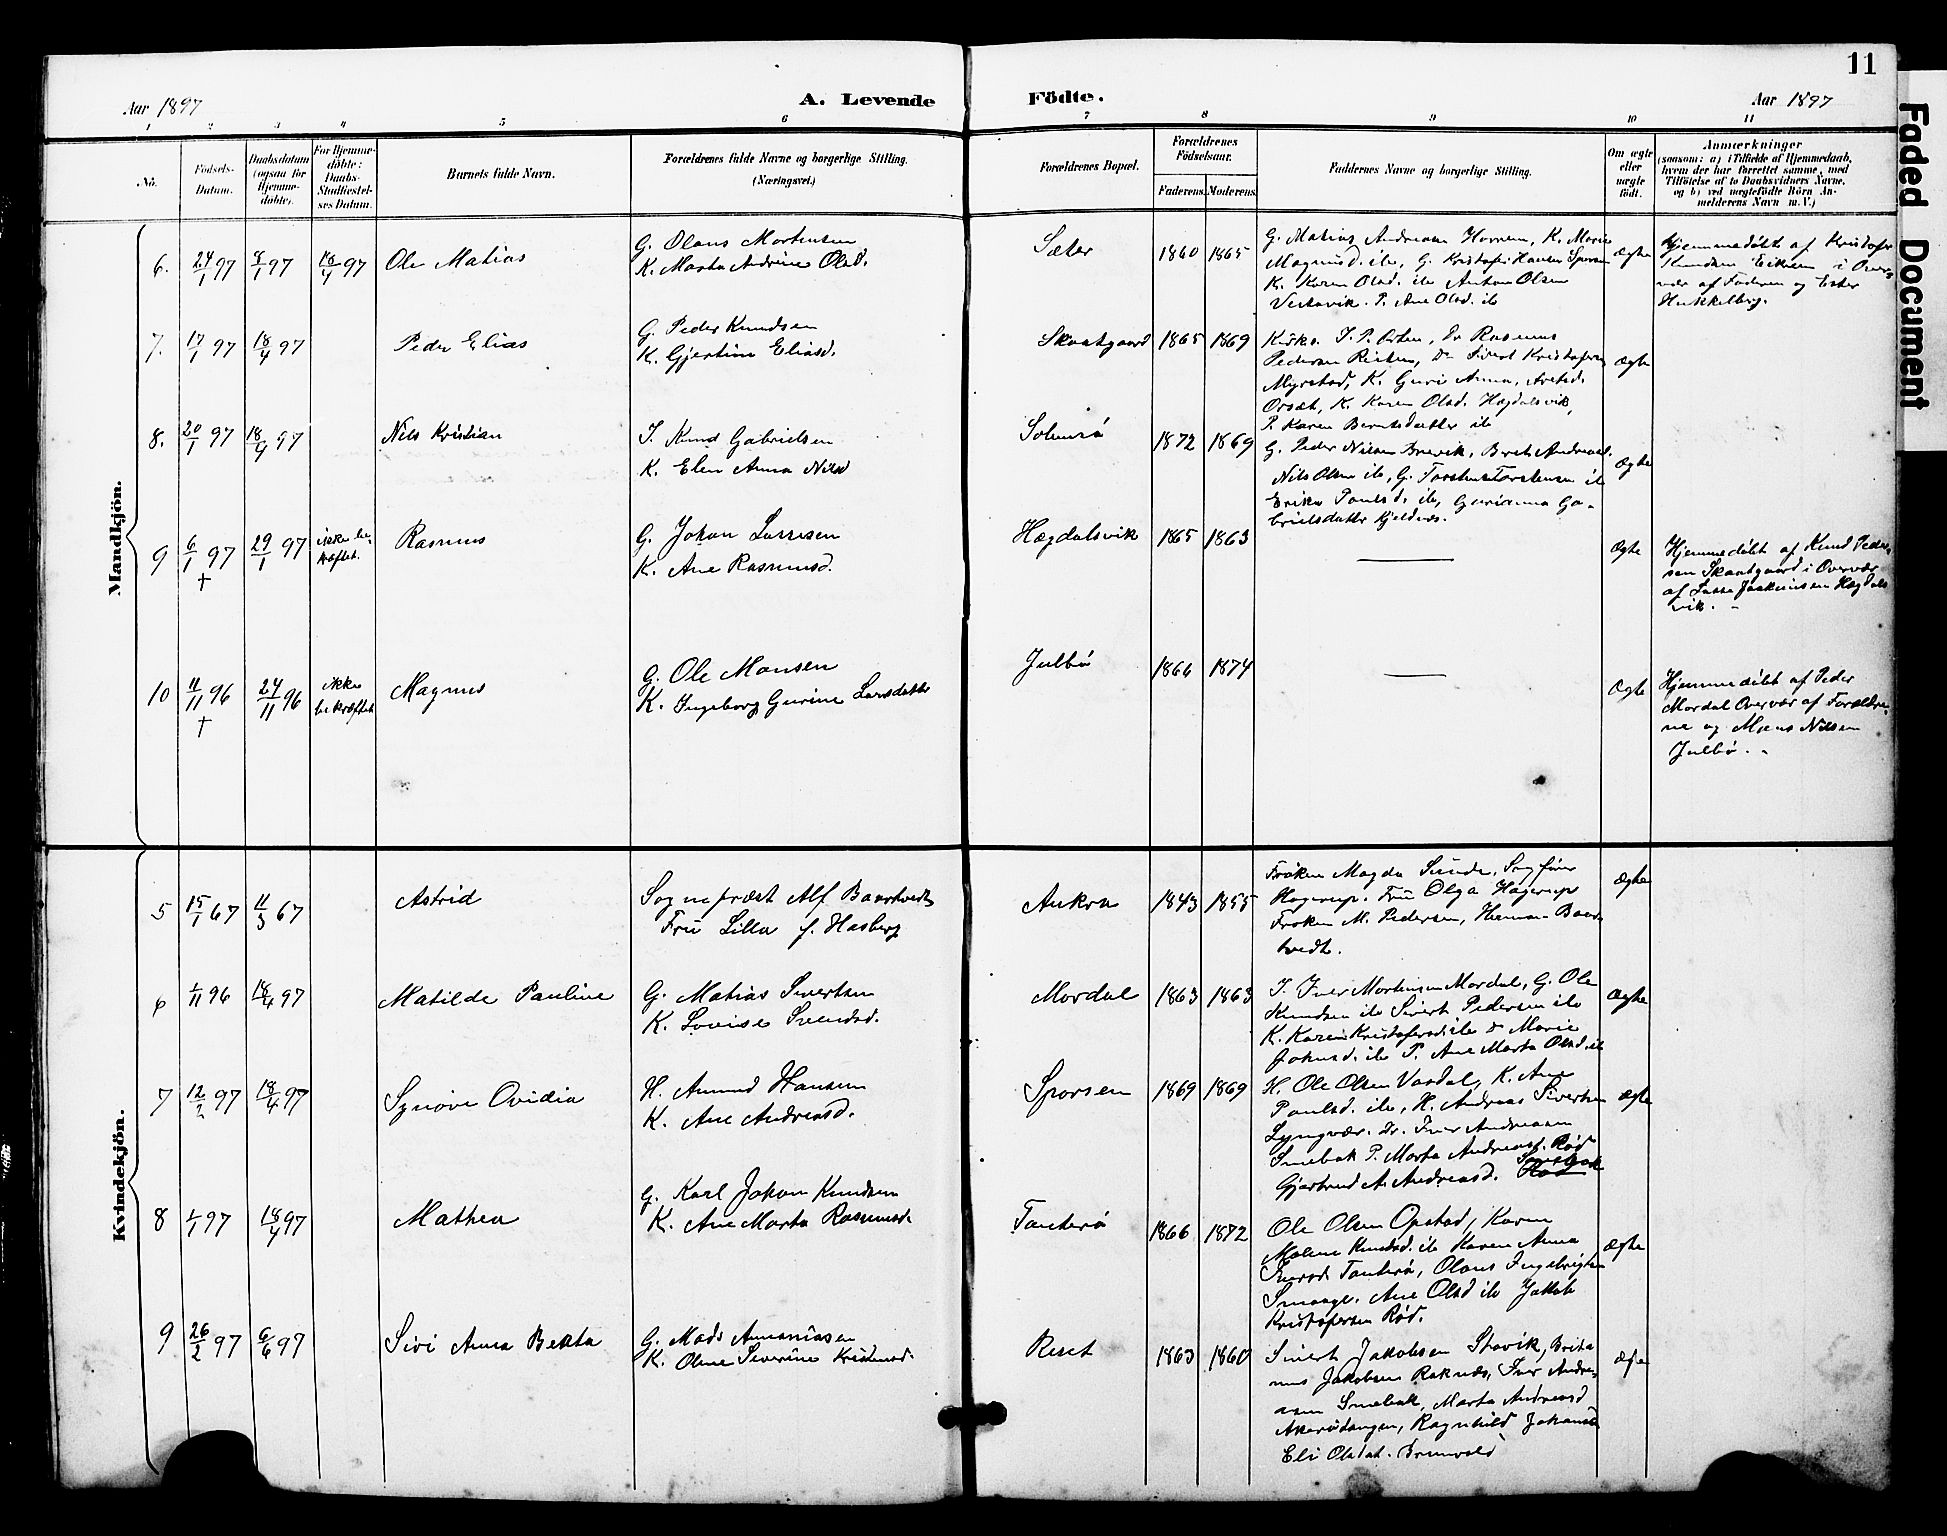 11
Aar 1897
A. Levende
Födte.
Aar 1897
1 2 3 4 5 6 7 8 9 10 11
No.
Födsels-
Datum.
Daabsdatum
(ogsaa for
Hjemme-
döbte).
For Hjemme-
döbte:
Daabs-
Stadfæstel-
ses Datum.
Barnets fulde Navn.
Forældrenes fulde Navne og borgerlige Stilling.
(Næringsvei.)
Forældrenes Bopæl.
Forældrenes
Födselsaar.
Faderens. Moderens.
Faddernes Navne og borgerlige Stilling.
Om ægte
eller
uægte
födt.
Anmærkninger
(saasom: a) i Tilfælde af Hjemmedaab,
hvem der har forrettet samme, med
Tilföielse af to Daabsvidners Navne,
og b) ved uægtefödte Börn An-
melderens Navn m. V.)
Mandkjön.
6. 24/1 97 8/1 97 18/4 97 Ole Matias
G. Olaus Mortensen
K. Marta Andrine Olsd.
Sæter 1860 1865
G. Matias Andreasen K. Marie
Magnusd. ib., G. Kristofer Hansen
K. Karen Olsd. ib Anton Olsen
P. Ane Olsd. ib
Ægte
Hjemmedöbt af Kristofer
Knudsen i Over-
vær af Faderen og Ester
Hukkelberg.
7. 17/1 97 18/4 97 Peder Elias
G. Peder Knudsen
K. Gjertine Eliasd.
Skaatgaard 1865 1869
Kirkes. Rasmus
Pedersen Sivert Kristofersen
Myrstad, K. Guri Anna,
Orset, K. Karen Olsd. Hægdalsvik,
P. Karen Berntsdatter ib
ægte
8. 20/1 97 18/4 97 Nils Kristian
I. Knud Gabrielsen
K. Elen Anna Nilsd
Solemsö 1872 1869
G. Peder Nilsen Brevik, Berit Andreasd.
Nils Olsen ib, G. Torsten Torstensen ib
Erika Paulsd. ib, Gurianna Ga-
brielsdatter Kjeldnes.
Ægte
9 6/1 97 † 29/1 97 ikke be-
kræftet. Rasmus
G. Johan Larsen
K. Ane Rasmusd.
Hægdalsvik 1865 1863 —
Ægte
Hjemmedöbt af Knud Peder-
sen Skaatgaard i Overvær
af Lasse Joakimsen Hægdals
vik.
10 11/11 96 † 24/11 96 ikke
bekræftet Magnus
G. Ole Monsen
K. Ingeborg Gurine Larsdatter
Julbö 1866 1874 —
Ægte
Hjemmedöbt af Peder
Mordal Overvær af Forældre-
ne og Mons Nilsen
Julbö.
Kvindekjön.
5 15/1 67 11/3 67 Astrid
Sognepræst Alf Baartvedt
Frü Lilla f. Hasberg
Aukra 1843 1855
Fröken Magda Sunde, Sagförer
Hagerup. Frü Olga Hagerup
Fröken M. Pedersen, Herman Baar-
tvedt.
ægte
6 1/11 96 18/4 97 Matilde Pauline
G. Matias Sivertsen
K. Lovise Svendsd.
Mordal 1863 1863
I. Iver Mortensen Mordal, G. Ole
Knudsen ib Sivert Pedersen ib
K. Karen Kristofersd ib & Marie
Johnsd. ib P. Ane Marta Olsd. ib
Ægte
7 12/2 97 18/4 97 Synöve Ovidia
H. Amund Hansen
K. Ane Andreasd.
Sporsem 1869 1869
H. Ole Olsen Vardal, K. Ane
Paulsd. ib, H. Andreas Sivertsen
Lyngvær. Dr. Iver Andreasen
Smebak P. Marta Andreasd. Röd
Gjertrud A. Andreasd. Smebak
ægte
8 1/1 97 18/4 97 Mathea
G. Karl Johan Knudsen
K. Ane Marta Rasmusd.
Tanterö 1866 1872
Ole Olsen Opstad, Karen
Malene Knudsd. ib Karen Anna
Iversd. Tanterö, Olaus Ingebrigtsen
Smaage. Ane Olsd ib Jakob
Kristofersen Röd.
Ægte
9 26/2 97 6/6 97 Sivi Anna Berta
G. Mads Ananiasen
K. Oline Severine Kristensd.
Reset 1863 1860
Sivert Jakobsen Stavik, Brita
Jakobsen Raknes, Iver Andre-
asen Smebak, Marta Andreasd
Akerötangen, Ragnhild Johansd
Eli Olsdat. Brunvold
ægte
Faded Document